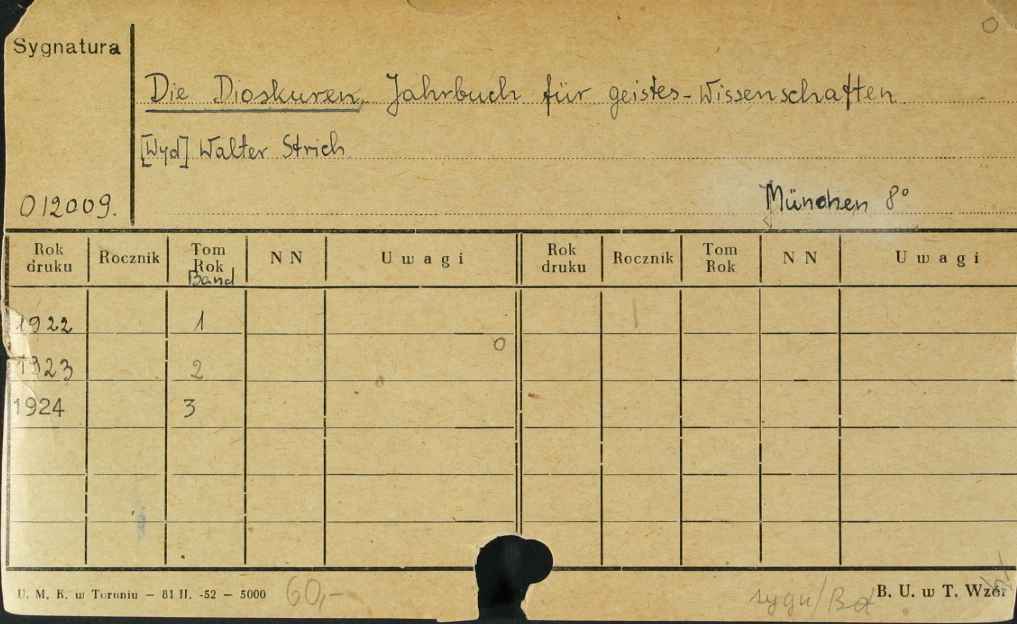 Sygnatura
Die Dioskuren, Jahrbuch für geistes-Wissenschaften
[Wyd] Walter Strich
012009.
München 8°
Rok druku Rocznik Tom Rok Band N N Uwagi Rok druku Rocznik Tom Rok N N Uwagi
1922 1
1923 2
1924 3
U. M. K. w Toruniu – 81 II. -52 – 5000 60,- sygn/Bd B. U. w T. Wzór